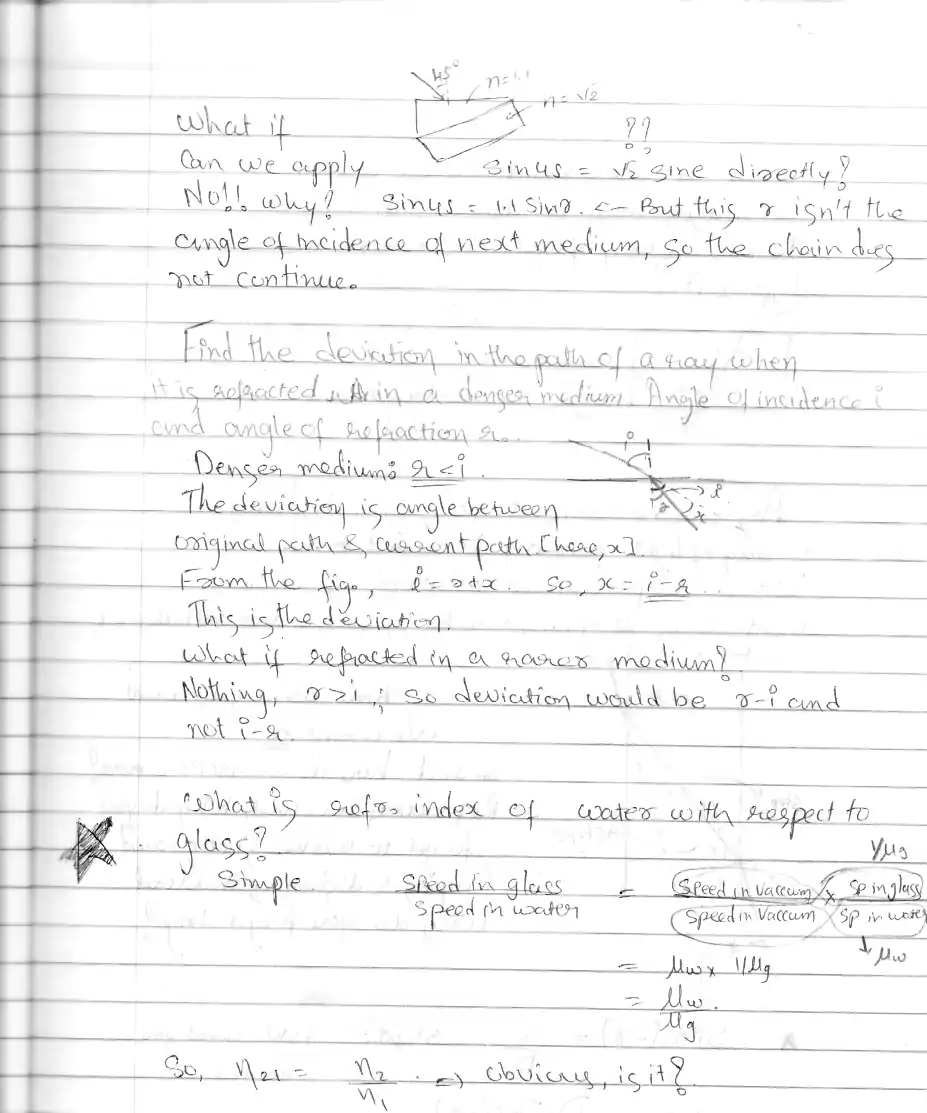 45° n=1.1
n=√2
What if ??
Can we apply sin45 = √2 sine directly?
No!! why? sin45 = 1.1 sinr. <- But this r isn't the
angle of incidence of next medium, so the chain does
not continue.
Find the deviation in the path of a ray when
it is refracted in a denser medium. Angle of incidence i
and angle of refraction r.
i
Denser medium: r<i.
i
r x
The deviation is angle between
original path & current path. [here, x].
From the fig., i = r+x. so, x = i-r.
This is the deviation.
What if refracted in a rarer medium?
Nothing, r>i ; so deviation would be r-i and
not i-r.
What is refr. index of water with respect to
glass?
1/μg
Simple. Speed in glass / Speed in water = Speed in Vaccum / Speed in Vaccum x Sp in glass / Sp in water
μw
= μw x 1/μg
= μw / μg
So, n21 = n2 / n1 . => obvious, is it?